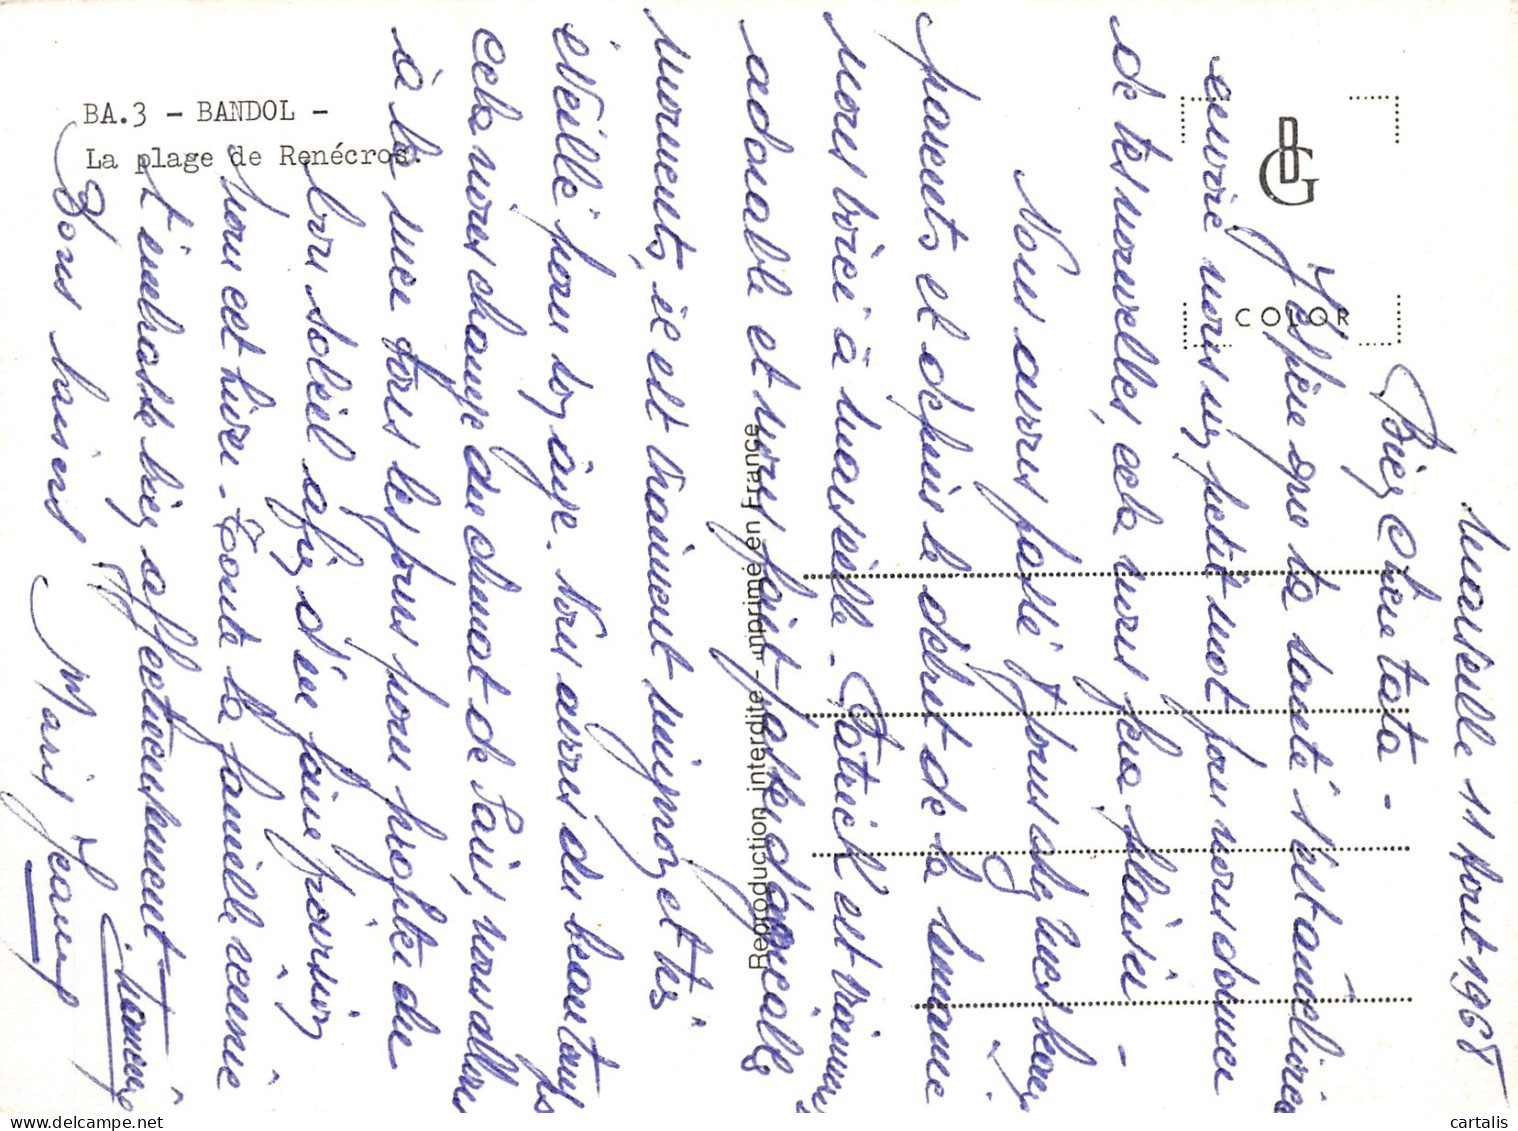 BA.3 - BANDOL -
La plage de Renécros.
COLOR
Reproduction interdite - imprimé en France
Marseille 11 Août 1968
Bien Chère tata -
J'espère que ta santé s'est améliorée
envoie nous un petit mot pour nous donner
de tes nouvelles, cela nous fera plaisir -
Nous avons passé 8 jours chez mes
parents et depuis le début de la semaine
nous voici à Marseille. Patrick est vraiment
adorable et nous fait passer d'agréables
moments, il est vraiment mignon et très
éveillé pour son âge. Nous avons du beau temps
cela nous change du climat de Paris, nous allons
à la mer tous les jours pour profiter du
bon soleil afin d'en faire provision
pour cet hiver - Toute la famille réunie
t'embrasse bien affectueusement
Bons baisers Marie Jeanne
cartalis